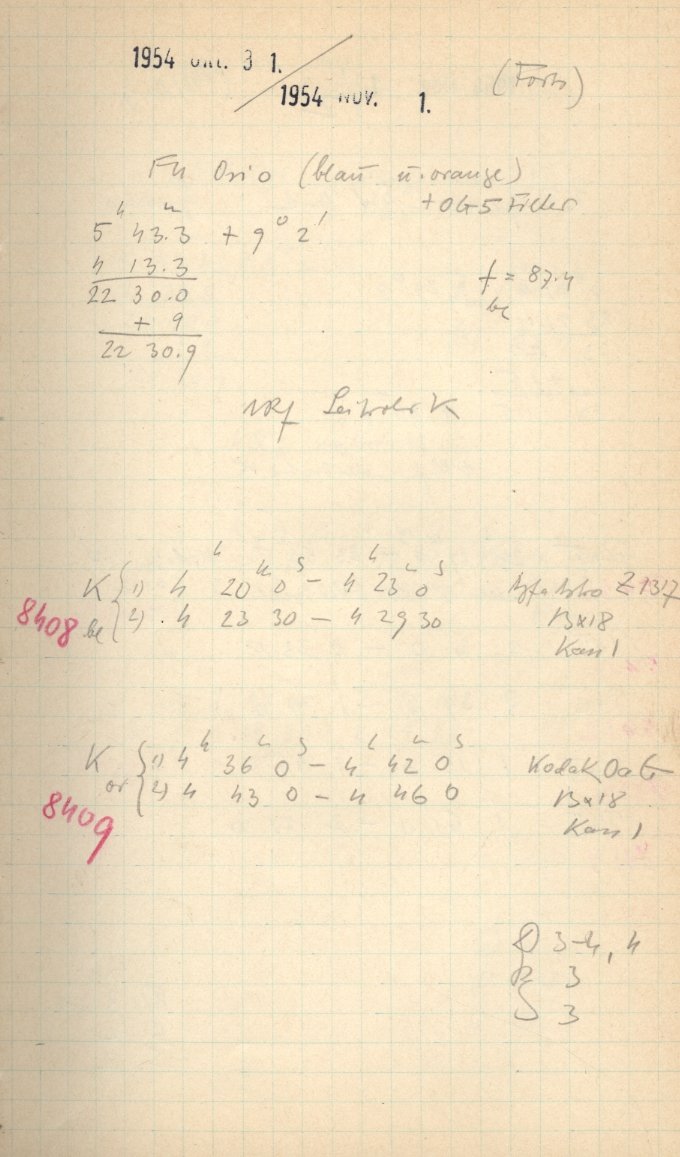 1954 OKT. 31.
1954 NOV. 1.
(Forts)
FU Orio (blau u. orange)
+ OG5 Filter
5ʰ 43.3ᵐ + 9° 2'
4 13.3
22 30.0
+ 9
22 30.9
f = 87.4
be
K be { 1) 4ʰ 20ᵐ 0ˢ – 4ʰ 23ᵐ 0ˢ
2) 4 23 30 – 4 29 30
8408
Agfa Astro Z 1317
13x18
Kass 1
K or { 1) 4ʰ 36ᵐ 0ˢ – 4ʰ 42ᵐ 0ˢ
2) 4 43 0 – 4 46 0
8409
Kodak OaG
13x18
Kass 1
D 3-4, 4
R 3
S 3